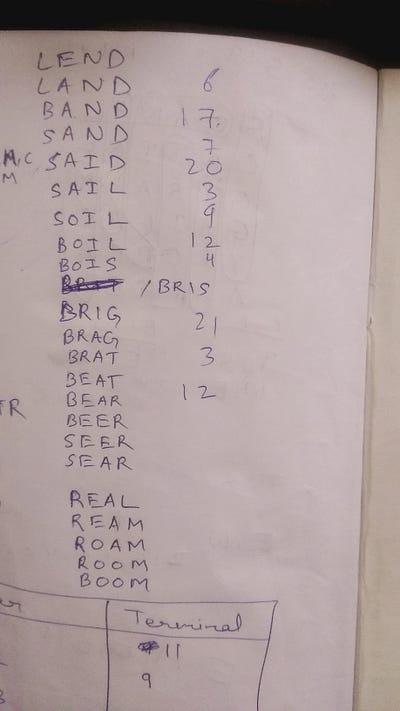 LEND
LAND 6
BAND 17.
SAND 7
M,C SAID 20
M
SAIL 3
SOIL 9
BOIL 12
BOIS 4
/BRIS
BRIG 21
BRAG
BRAT 3
BEAT
BEAR 12
TR
BEER
SEER
SEAR
REAL
REAM
ROAM
ROOM
BOOM
Terminal
11
9